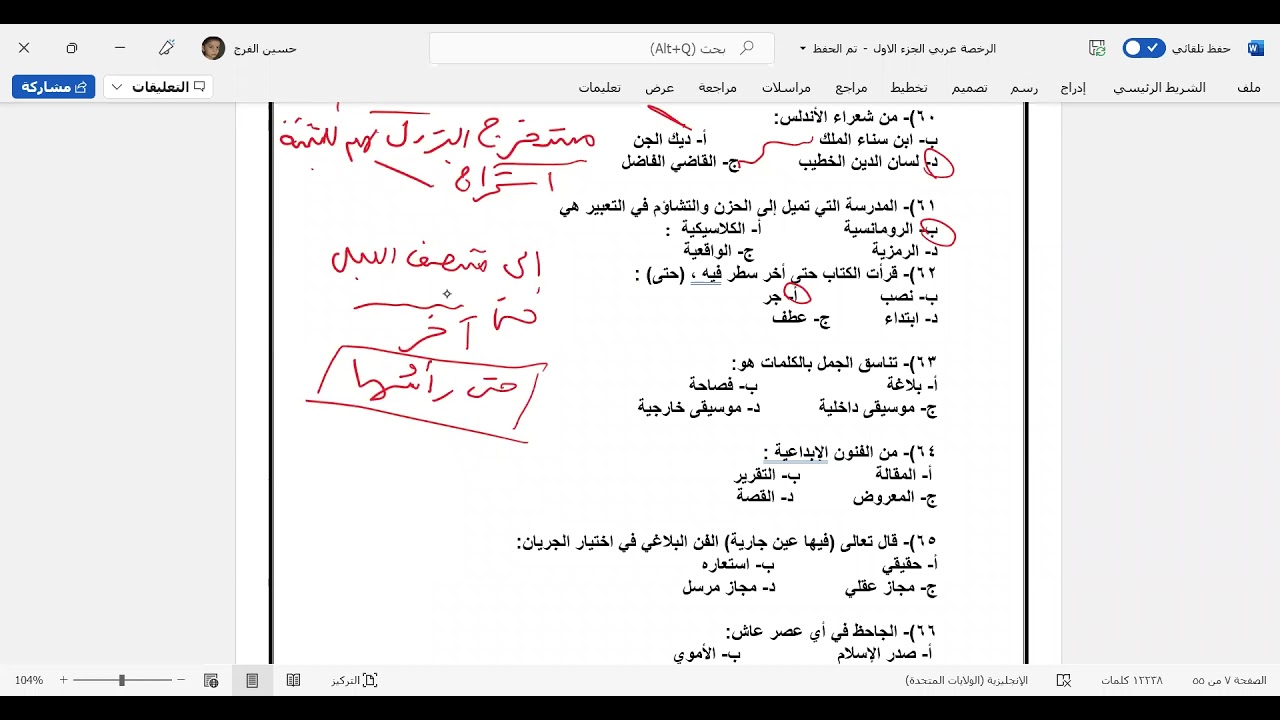 حفظ تلقائي
الرخصة عربي الجزء الاول - تم الحفظ
بحث (Alt+Q)
حسين الفرج
ملف الشريط الرئيسي إدراج رسم تصميم تخطيط مراجع مراسلات مراجعة عرض تعليمات
التعليقات
مشاركة
٦٠)- من شعراء الأندلس:
أ- ديك الجن ب- ابن سناء الملك
ج- القاضي الفاضل د- لسان الدين الخطيب
٦١)- المدرسة التي تميل إلى الحزن والتشاؤم في التعبير هي
أ- الكلاسيكية : ب- الرومانسية
ج- الواقعية د- الرمزية
٦٢)- قرأت الكتاب حتى أخر سطر فيه ، (حتى) :
أ- جر ب- نصب
ج- عطف د- ابتداء
٦٣)- تناسق الجمل بالكلمات هو:
أ- بلاغة ب- فصاحة
ج- موسيقى داخلية د- موسيقى خارجية
٦٤)- من الفنون الإبداعية :
أ- المقالة ب- التقرير
ج- المعروض د- القصة
٦٥)- قال تعالى (فيها عين جارية) الفن البلاغي في اختيار الجريان:
أ- حقيقي ب- استعاره
ج- مجاز عقلي د- مجاز مرسل
٦٦)- الجاحظ في أي عصر عاش:
أ- صدر الإسلام ب- الأموي
البترول
إلى منتصف الليل
حتى
آخر
حتى رأسها
الصفحة ٧ من ٥٥
١٢٢٣٨ كلمات
الإنجليزية (الولايات المتحدة)
التركيز
104%